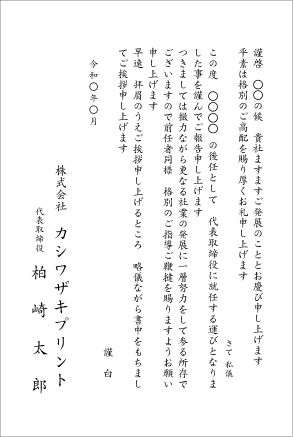 謹啓　〇〇の候　貴社ますますご発展のこととお慶び申し上げます
平素は格別のご高配を賜り厚くお礼申し上げます
さて　私儀
この度　〇〇〇〇　の後任として　代表取締役に就任する運びとなりま
した事を謹んでご報告申し上げます
つきましては微力ながら更なる社業の発展に一層努力をして参る所存で
ございますので前任者同様　格別のご指導ご鞭撻を賜りますようお願い
申し上げます
早速　拝眉のうえご挨拶申し上げるところ　略儀ながら書中をもちまし
てご挨拶申し上げます
謹　白
令和〇年〇月
株式会社　カシワザキプリント
代表取締役　柏　崎　太　郎